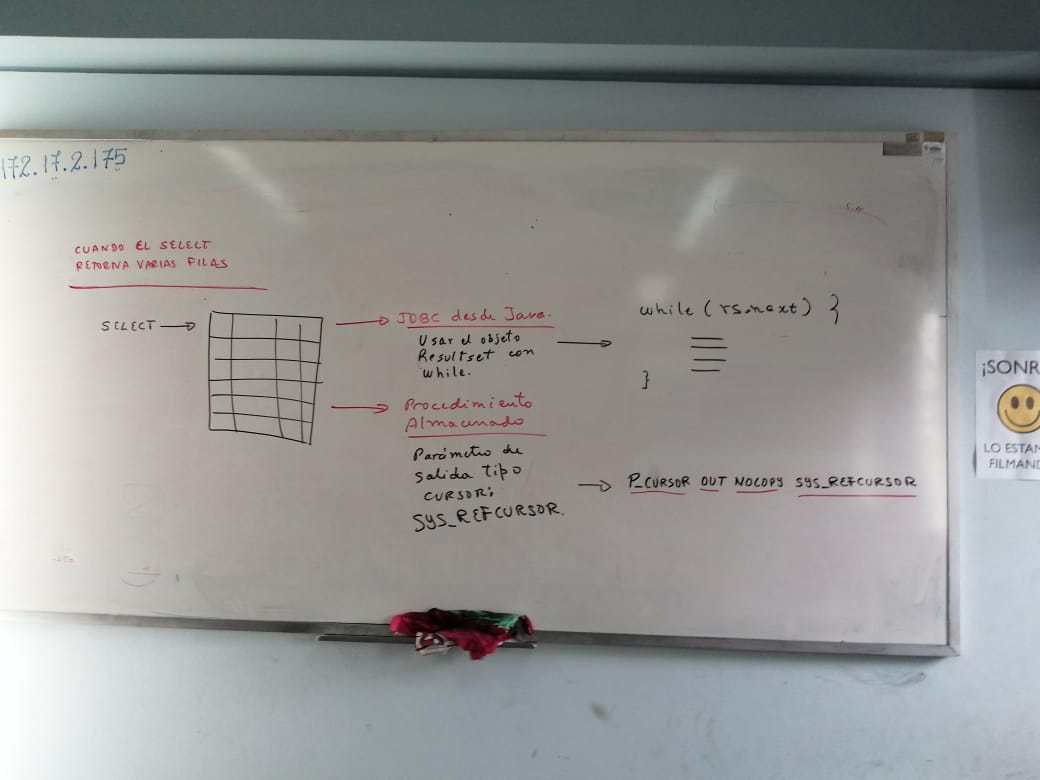 172.17.2.175
CUANDO EL SELECT
RETORNA VARIAS FILAS
SELECT
JDBC desde Java.
Usar el objeto
Resultset con
while.
while (rs.next) }
}
Procedimiento
Almacenado
Parámetro de
salida tipo
CURSOR:
SYS_REFCURSOR.
P_CURSOR OUT NOCOPY SYS_REFCURSOR
¡SONR
LO ESTAN
FILMAND